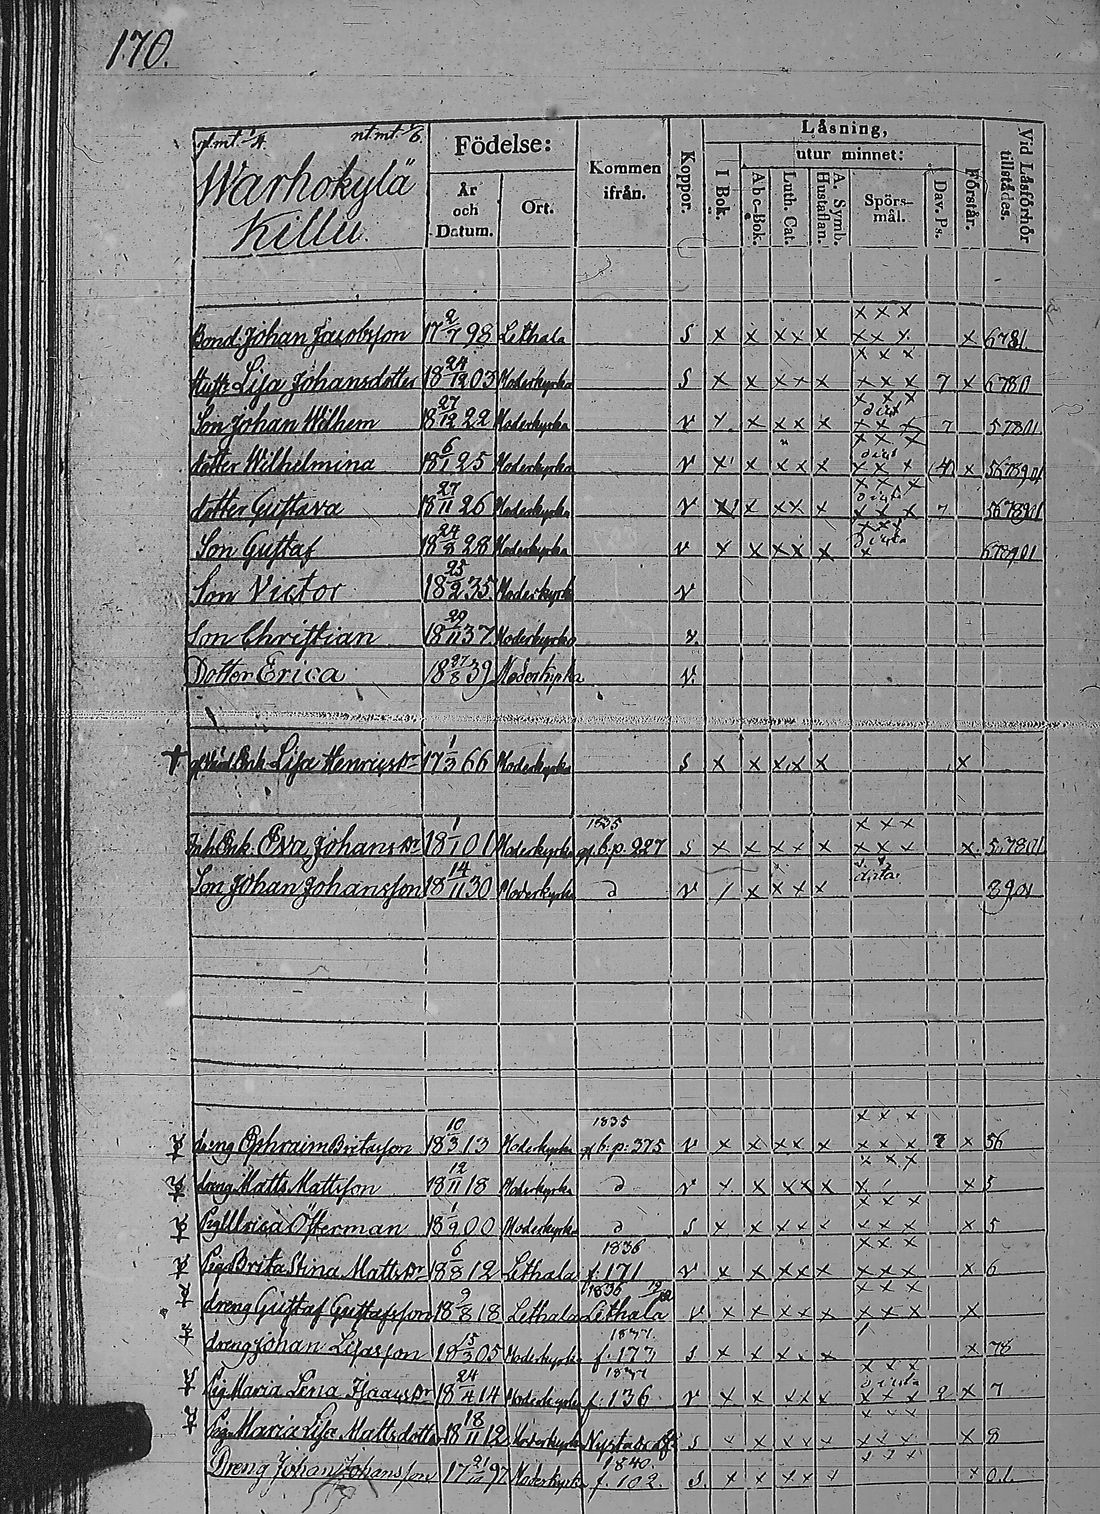 170.
gl.mt. 1/4. nt.mt. 1/6.
Warhokylä
Killu.
Födelse:
År och Datum.
Ort.
Kommen ifrån.
Koppor.
Låsning,
utur minnet:
I Bok.
Abc-Bok.
Luth. Cat.
A. Symb. Hustaflan.
Spörsmål.
Dav. Ps.
Förstår.
Vid Låsförhör tillstådes.
Bond. Johan Jacobsson 17 2/7 98 Lethala S x x x x x x x x x x x x 6781
Hustr Lisa Johansdotter 18 24/12 03 Moderkyrka S x x x x x x x x x x x 7 x 6780
Son Johan Wilhem 18 27/12 22 Moderkyrka V x x x x x x x x 7 57801
dotter Wilhelmina 18 6/1 25 Moderkyrka V x x x x x x x x (4) x 5678901
dotter Gustava 18 27/11 26 Moderkyrka V x x x x x x x x 7 5678901
Son Gustaf 18 24/8 28 Moderkyrka V x x x x x x 678901
Son Victor 18 25/2 35 Moderkyrk V
Son Christian 18 29/11 37 Moderkyrka V.
Dotter Erica 18 27/8 39 Moderkyrka V.
Enk. Lisa Henricsdr 17 1/3 66 Moderkyrka S x x x x x x
Enk. Eva Johansdr 18 1/1 01 Moderkyrka 1835 gl.b.p. 227 S x x x x x x x x x x x x 57801
Son Johan Johansson 18 14/11 30 Moderkyrka d V / x x x x 8901
dreng Ephraim Britasson 18 10/3 13 Moderkyrka 1835 gl b. p: 375 V x x x x x x x x x x x 7 x 56
dreng Matts Mattsson 18 12/11 18 Moderkyrka d V x x x x x x x 5
Pig Ulrica Österman 18 1/9 00 Moderkyrka d S x x x x x x x x x 5
Piga Brita Stina Mattsdr 18 6/8 12 Lethala 1836 f. 171 V x x x x x x x x x 6
dreng Gustaf Gustafsson 18 9/8 18 Lethala 1836 Lethala V x x x x x x x x x
dreng Johan Lisasson 18 15/3 05 Moderkyrka 1837. f. 173 S x x x x x x 78
Pig Maria Lena Isaacsdr 18 24/4 14 Moderkyrka 1837 f. 136 V x x x x x x x x 2 x 7
Pig. Maria Lisa Mattsdotter 18 18/11 12 Moderkyrka Nystad S x x x x x x x x x 8
Dreng Johan Johansson 17 21/10 97 Moderkyrka 1840. f. 102. S. x x x x x x 01.